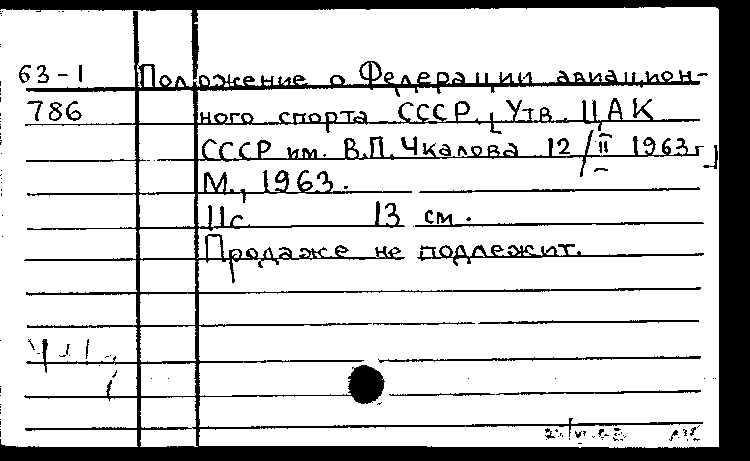 63-1 Положение о Федерации авиацион-
786 ного спорта СССР. [Утв. ЦАК
СССР им. В.П. Чкалова 12/II 1963г.]
М., 1963.
11с. 13 см.
Продаже не подлежит.